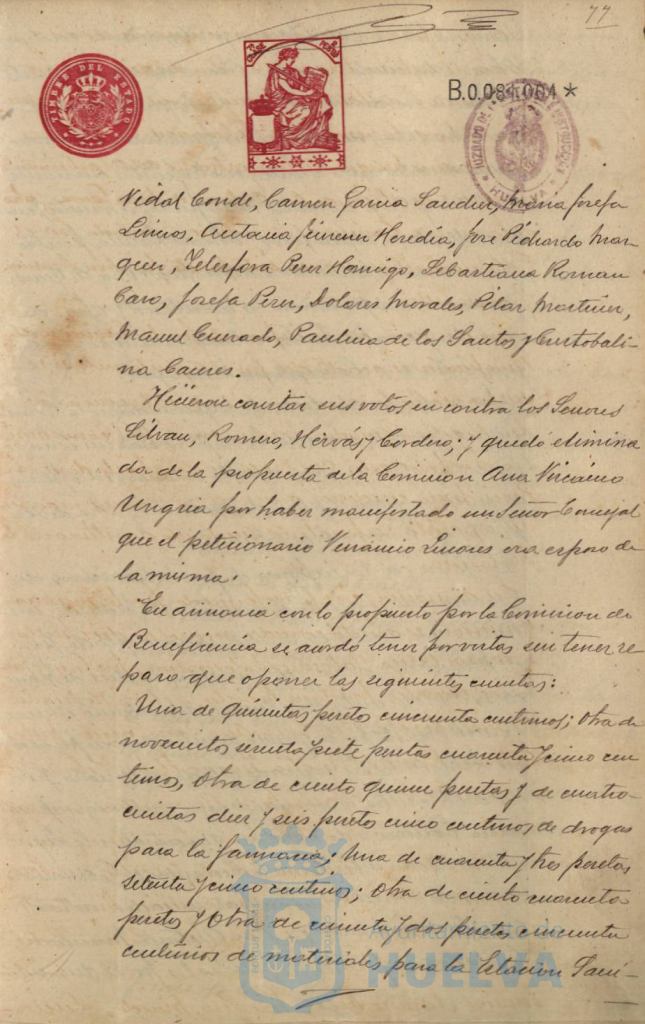 77
TIMBRE DEL ESTADO
B.0.081.004 *
JUZGADO DE
HUELVA
Vidal Conde, Carmen Garcia Sanchez, Maria Josefa
Linares, Antonia Jimenez Heredia, José Pichardo Mar-
quez, Telesfora Perez Hormigo, Sebastiana Roman
Caro, Josefa Perez, Dolores Morales, Pilar Martinez,
Manuel Cumado, Paulina de los Santos y Cristobali-
na Caceres.
Hicieron constar sus votos en contra los Señores
Silvan, Romero, Hervás y Cordero; y quedó elimina
da de la propuesta de la Comision Ana Vizcaino
Ungria por haber manifestado un Señor Concejal
que el peticionario Venancio Linares era esposo de
la misma.
En armonia con lo propuesto por la Comision de
Beneficencia se acordó tener por vistas sin tener re
paro que oponer las siguientes cuentas:
Una de Quinientas pesetas cincuenta centimos; Otra de
novecientos setenta y siete pesetas cuarenta y cinco cen
timos, Otra de ciento quince pesetas y de cuatro-
cientas diez y seis pesetas cinco centimos de drogas
para la farmacia; Una de cuarenta y tres pesetas
setenta y cinco centimos; Otra de ciento cuarenta
pesetas y Otra de cincuenta y dos pesetas cincuenta
centimos de materiales para la Estacion Sani-
HUELVA